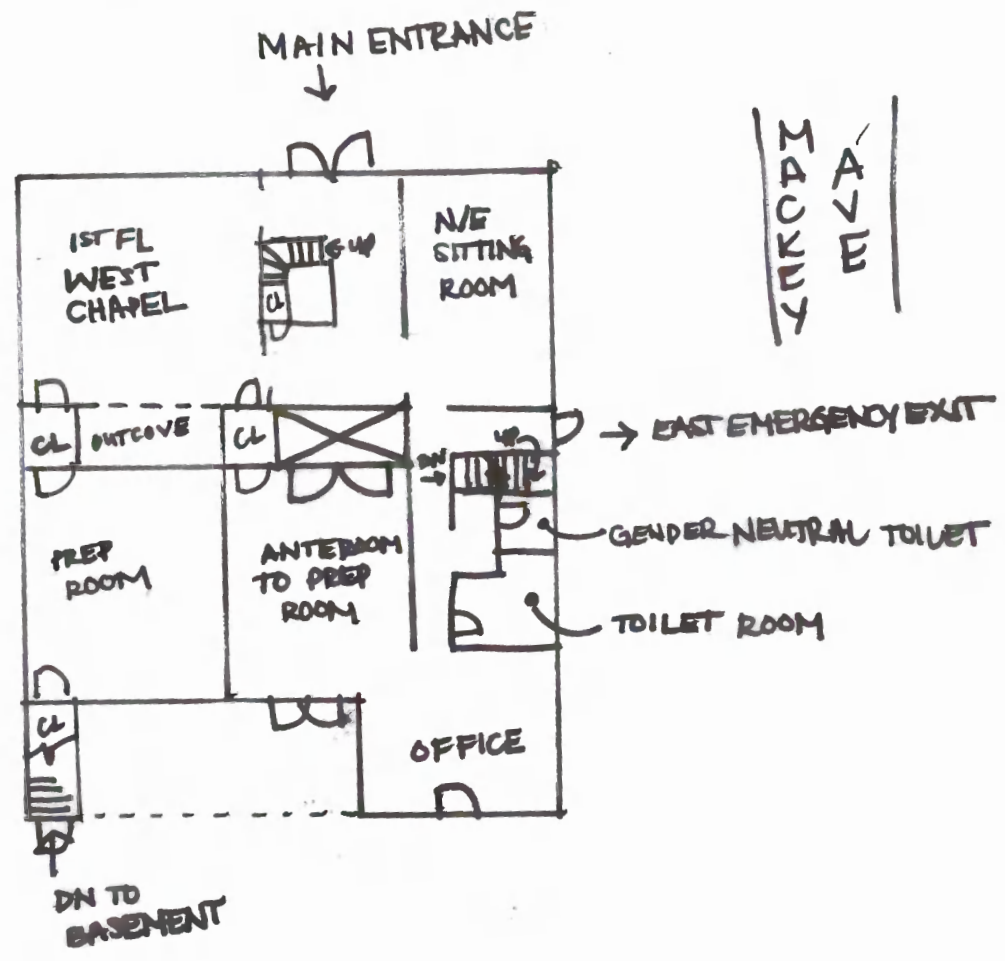 MAIN ENTRANCE
MACKEY
AVE
1ST FL
WEST
CHAPEL
UP
CL
N/E
SITTING
ROOM
CL
OUTCOVE
CL
EAST EMERGENCY EXIT
UP
DN
GENDER NEUTRAL TOILET
PREP
ROOM
ANTEROOM
TO PREP
ROOM
TOILET ROOM
CL
OFFICE
DN TO
BASEMENT